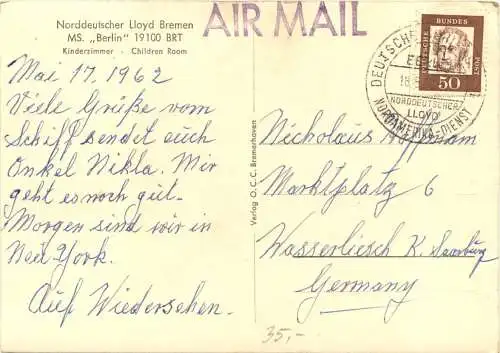 Norddeutscher Lloyd Bremen
MS. „Berlin" 19100 BRT
Kinderzimmer · Children Room
AIR MAIL
Mai 17, 1962
Viele Grüße vom
Schiff sendet euch
Onkel Nikla. Mir
geht es noch gut.
Morgen sind wir in
New York.
Auf Wiedersehen.
Verlag O.C.C. Bremerhaven
DEUTSCHE
NORDDEUTSCHER
LLOYD
NORDAMERIKA-DIENST
DEUTSCHE BUNDESPOST
50
Nickolaus Hoffmann
Marktplatz 6
Wasserliesch K. Saarburg
Germany
35,-